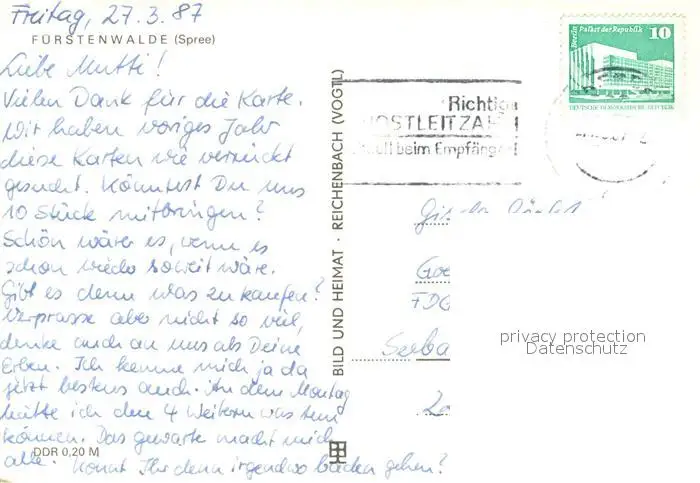 Freitag, 27.3.87
FÜRSTENWALDE (Spree)
Liebe Mutti!
Vielen Dank für die Karte.
Wir haben voriges Jahr
diese Karten wie verrückt
gesucht. Könntest Du uns
10 Stück mitbringen?
Schön wäre es, wenn es
schon wieder soweit wäre.
Gibt es denn was zu kaufen?
Verprasse aber nicht so viel,
denke auch an uns als Deine
Erben. Ich kenne mich ja da
jetzt bestens auch. An dem Montag
hätte ich den 4 Weitern was
können. Das macht mich
alle. Konnt Ihr denn irgendwo baden gehen?
DDR 0,20 M
BILD UND HEIMAT · REICHENBACH (VOGTL)
Richtig
POSTLEITZAHL
hilft beim Empfänger
Berlin Palast der Republik
10
DEUTSCHE DEMOKRATISCHE REPUBLIK
Gisela
FDG
privacy protection
Datenschutz